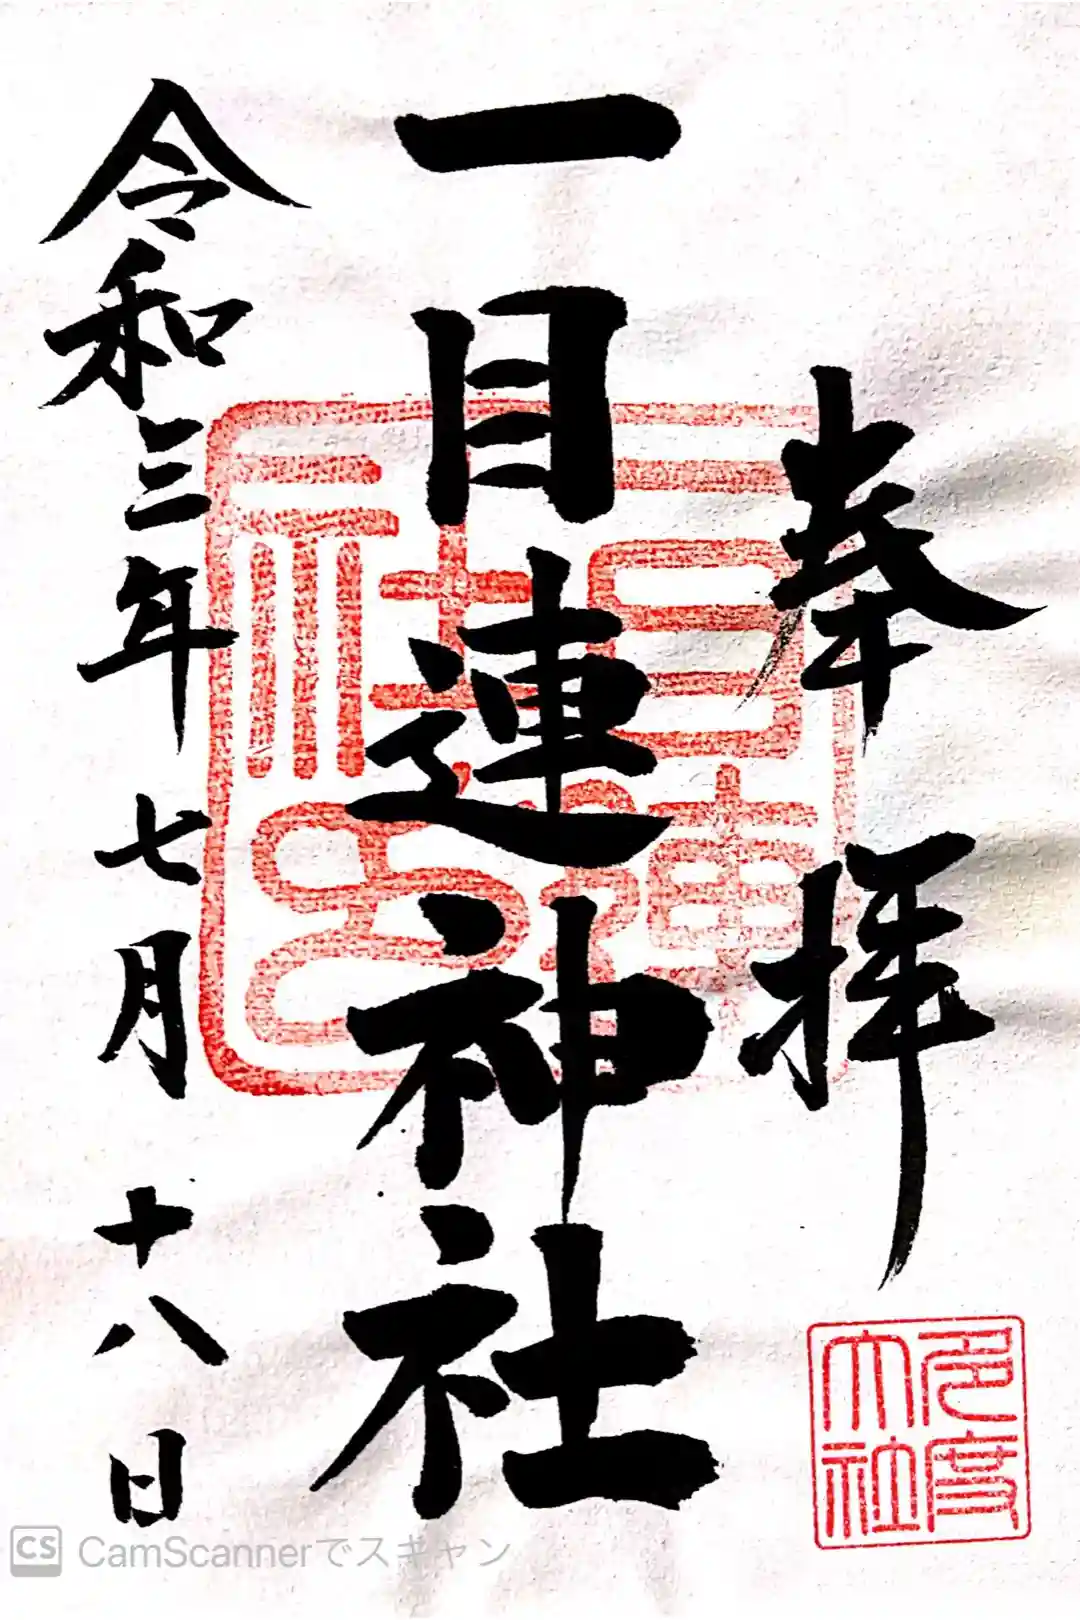 奉拝
一目連神社
令和三年七月十八日
多度大社
CS CamScannerでスキャン